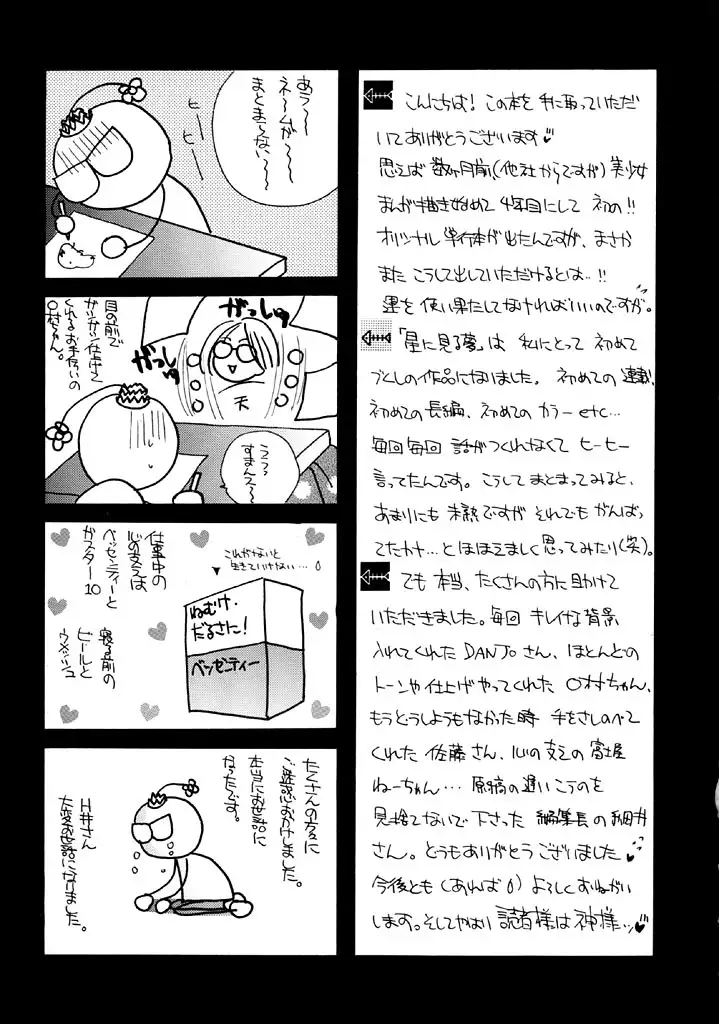 こんにちは！この本を手に取っていただ
いてありがとうございます
思えば数ヶ月前、(他社からですが)美少女
まんが描き始めて4年目にして初の!!
オリジナル単行本が出たんですが、まさか
またこうして出していただけるとは…!!
運を使い果たしてなければいいのですが。
「星に見る夢」は私にとって初めて
づくしの作品になりました。初めての連載、
初めての長編、初めてのカラーetc…
毎回毎回話がつくれなくてヒーヒー
言ってたんです。こうしてまとまってみると、
あまりにも未熟ですがそれでもがんばっ
てたかナ…とほほえましく思ってみたり(笑)。
でも本当、たくさんの方に助けて
いただきました。毎回キレイな背景
入れてくれたDANJoさん、ほとんどの
トーンや仕上げやってくれた〇村ちゃん、
もうどうしようもなかった時手をさしのべて
くれた佐藤さん、心の支えの富士屋
ねーちゃん…原稿の遅いこのを
見捨てないで下さった編集長の細井
さん。どうもありがとうございました
今後とも(あれば)よろしくおねがい
します。そしてやはり読者様は神様…
あう〜〜
ネ〜ムが〜
まとま〜らない〜〜
ヒー
ヒー
目の前で
ガツガツ仕事して
くれるお手伝いの
〇村ちゃん。
がっしゅ
がっしゅ
天
ううっ
すまんえ〜〜
仕事中の
心の支えは
ベッセンティーと
ガスター10
寝る前の
ビールと
ウメッシュ
これがないと
生きていけない…
ねむけ・
だるさに！
ベッセンティー
たくさんの方々に
ご迷惑おかけしました。
本当にお世話に
なったです。
H井さん
大変お世話になりました。